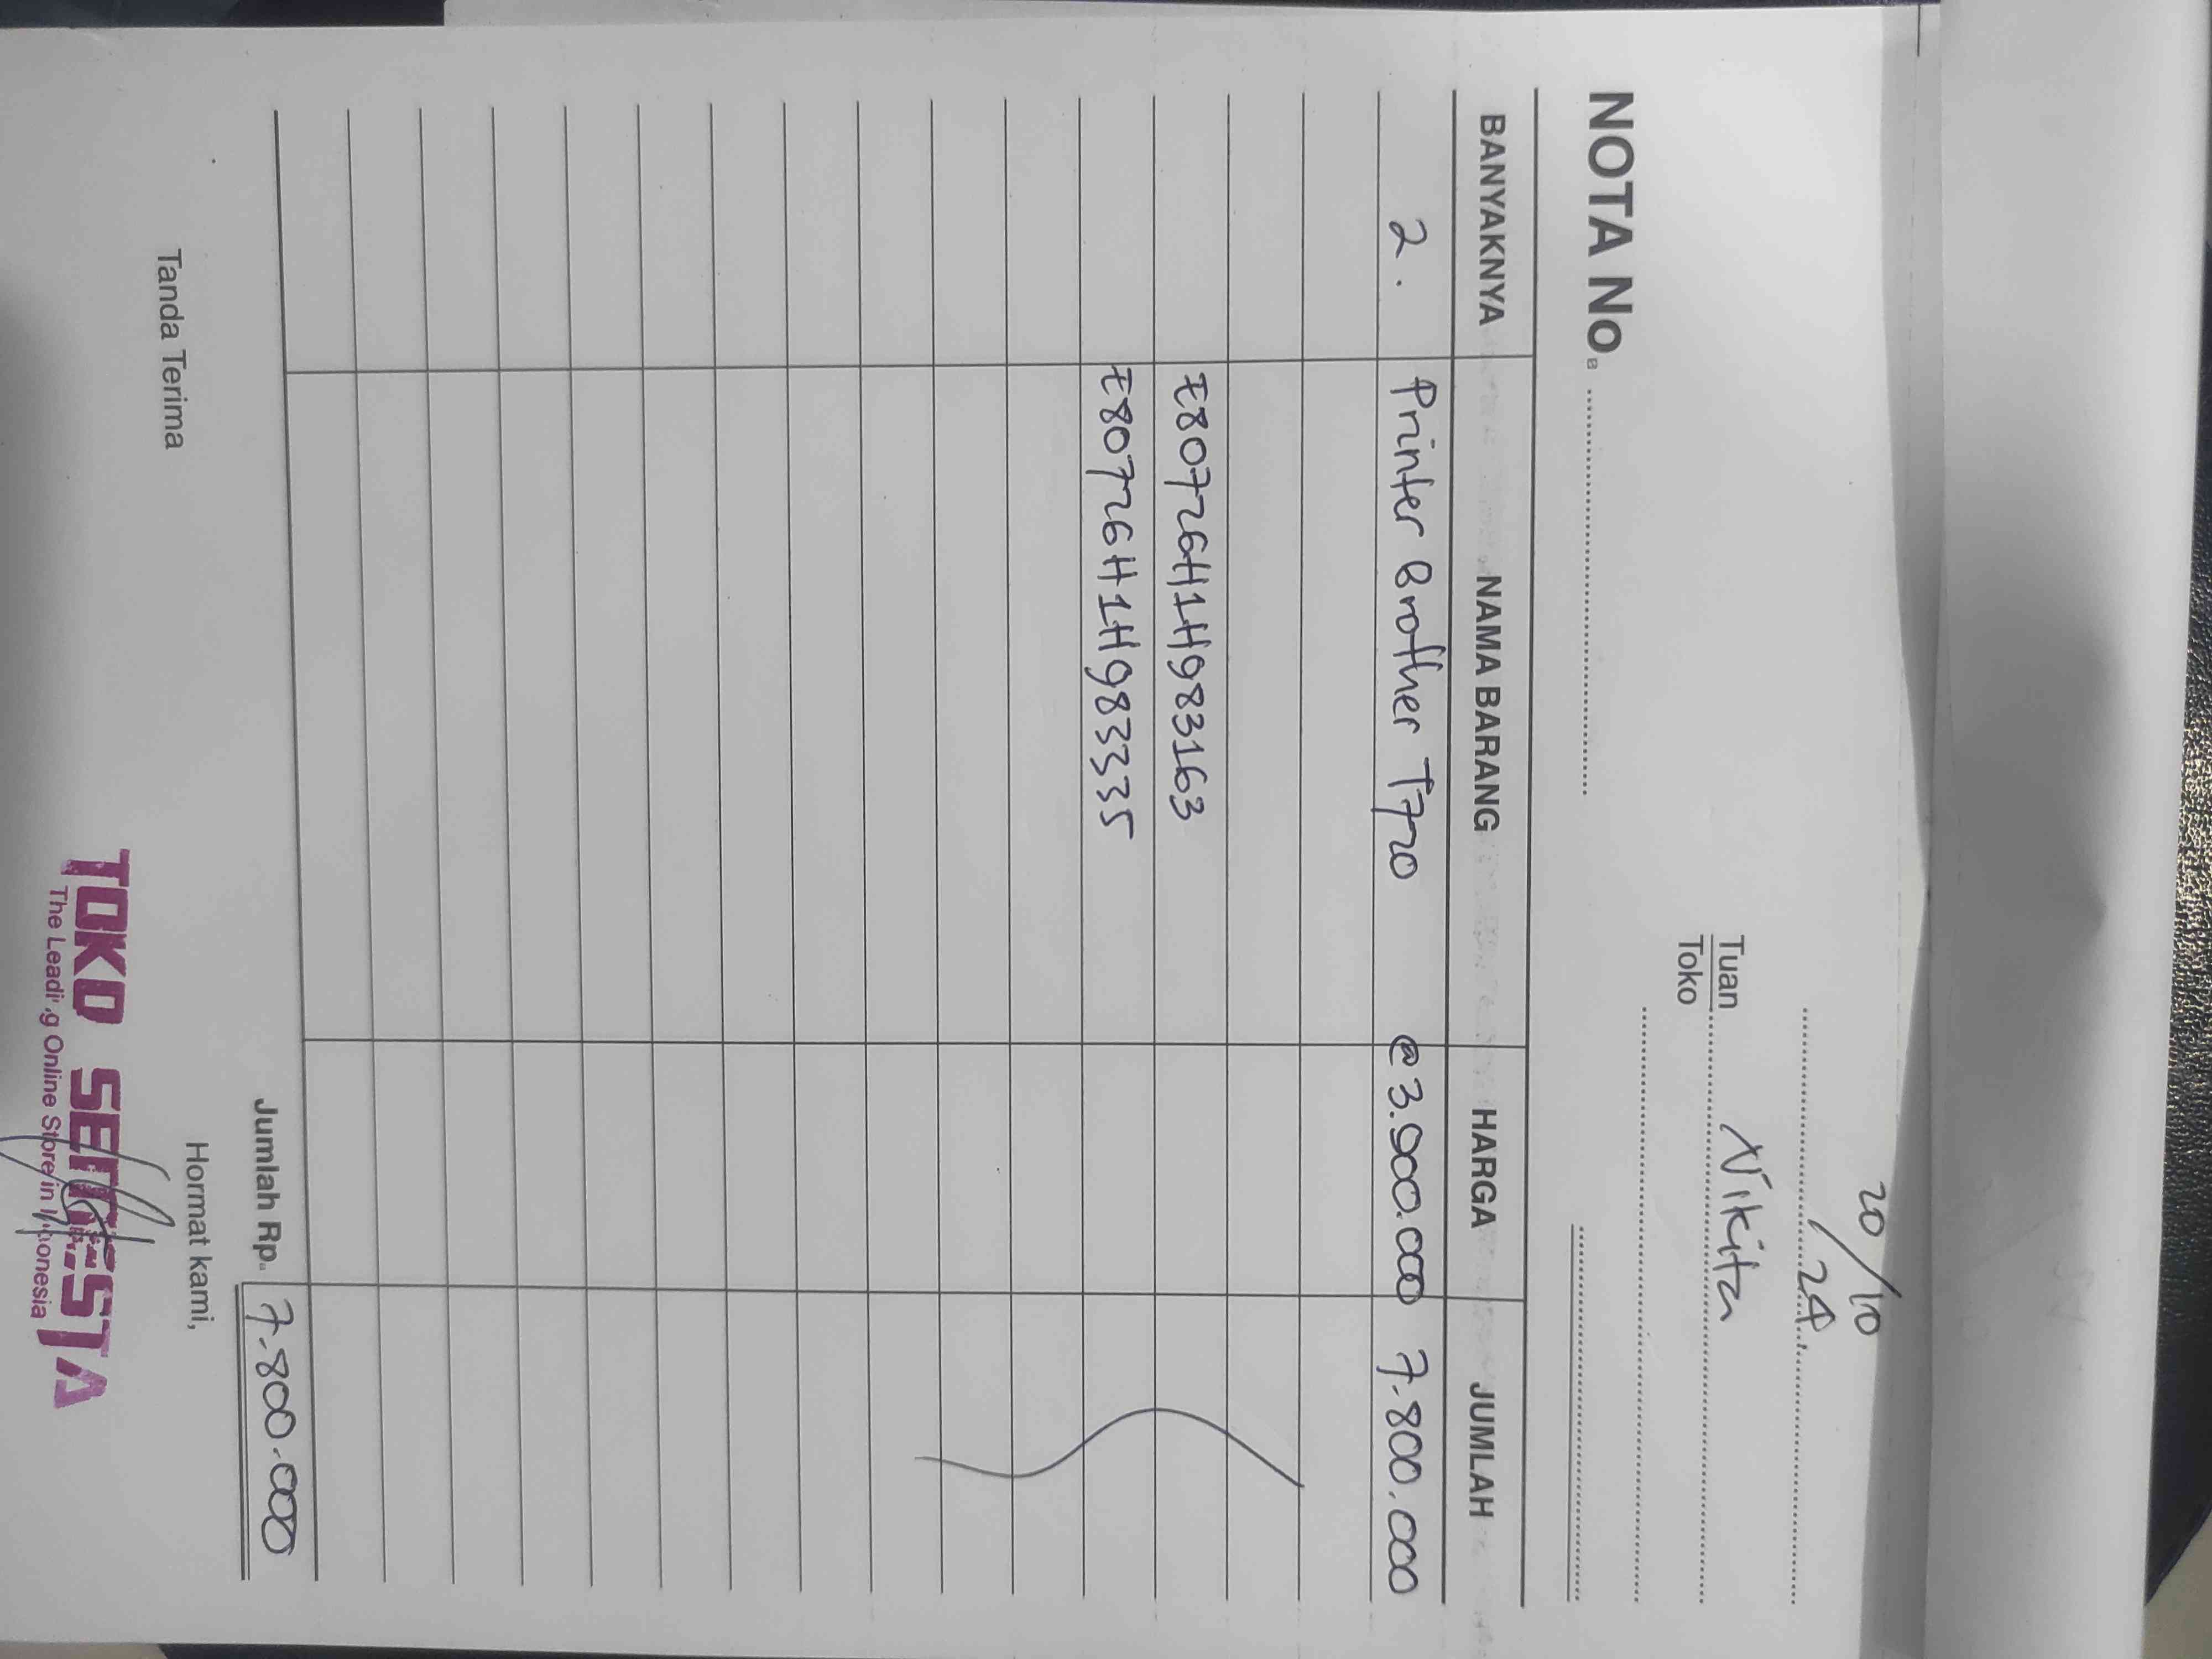 20/10
24
Tuan Nikita
Toko
NOTA No.
BANYAKNYA NAMA BARANG HARGA JUMLAH
2. Printer Brother T720 @ 3.900.000 7.800.000
E80726H1H983163
E80726H1H983335
Jumlah Rp. 7.800.000
Tanda Terima Hormat kami,
TOKO SEMESTA
The Leading Online Store in Indonesia